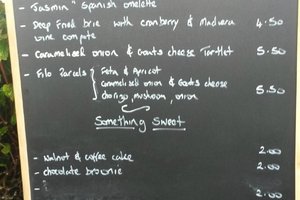 - "Jasmin" Spanish omelette
- Deep Fried brie with cranberry & Madeira 4.50
wine compote
- Caramelised onion & Goats cheese Tartlet 5.50
- Filo Parcels { Feta & Apricot
Caramelised onion & Goats cheese 5.50
chorizo, mushroom, onion
Something Sweet
- Walnut & coffee cake 2.00
- chocolate brownie 2.00
- 2.00